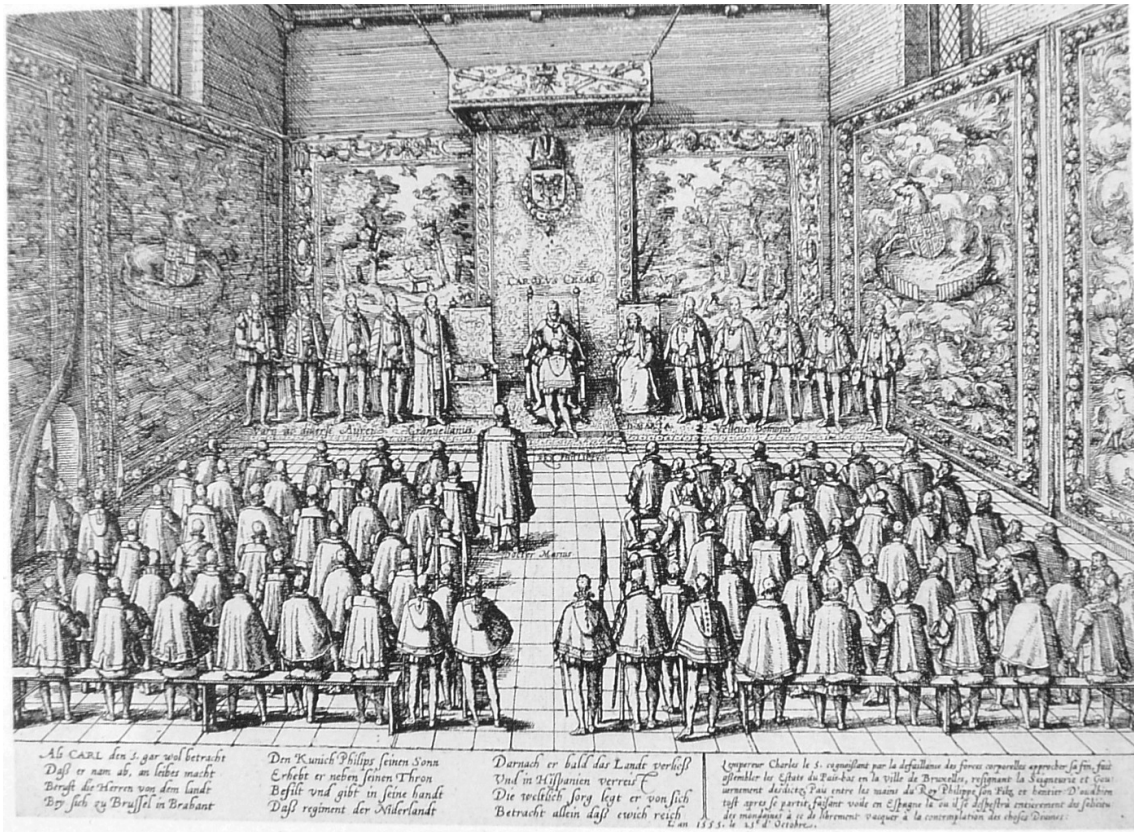 CAROLVS CESAR
Granvellanus
D. MARIA
Velleris
Philippus
Doctor Masius
Als CARL den 5. gar wol betracht
Daß er nam ab, an leibes macht
Berufft die Herren von dem landt
Bey sich zu Brüssel in Brabant
Den Kunich Philips seinen Sonn
Erhebt er neben seinen Thron
Befilt vnd gibt in seine handt
Daß regiment der Niderlandt
Darnach er bald das Landt verließ
Vnd in Hispanien verreist
Die weltlich sorg legt er von sich
Betracht allein daß ewich reich
L'empereur Charles le 5. cognoissant par la defaillance des forces corporelles approcher sa fin, fait
assembler les Estats du Pais-bas en la ville de Bruxelles, resignant la Seigneurie et Gou:
uernement desdictz Pais entre les mains du Roy Philippe son Filz et heritier D'ou bien
tost apres se partit, faisant voile en Espagne la ou il se despestra entierement des solicitu
des mondaines a fin de librement vacquer à la contemplation des choses Diuines:
L'an 1555. le 25.e d'Octobre.